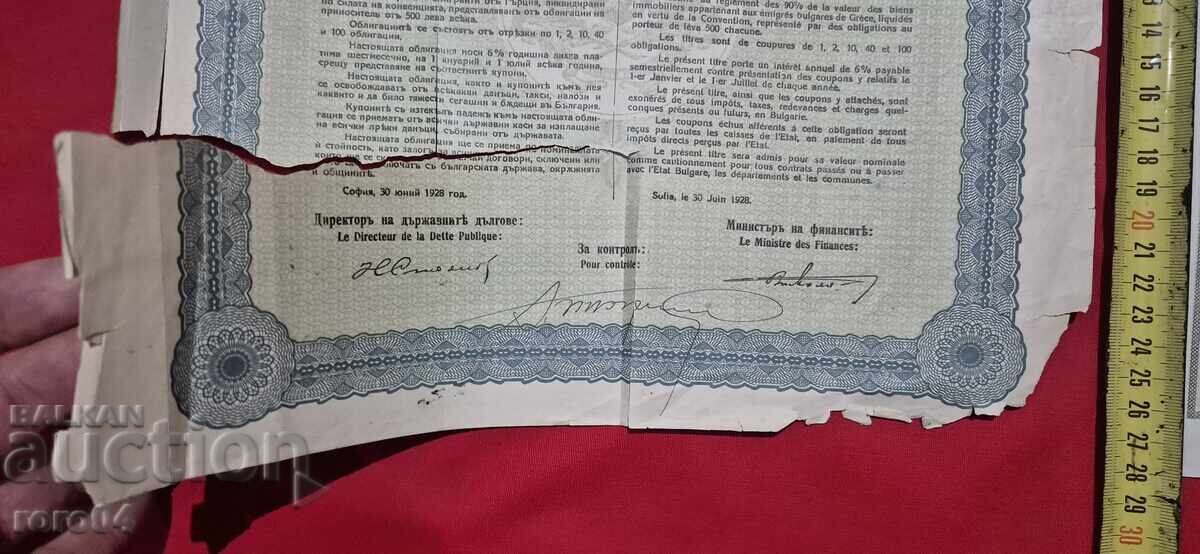 по силата на конвенцията, представляванъ отъ облигации на
приносителъ отъ 500 лева всѣка.
Облигациитѣ се състоятъ отъ отрѣзки по 1, 2, 10, 40
и 100 облигации.
Настоящата облигация носи 6% годишна лихва пла-
тима шестмесечно, на 1 януарий и 1 юлий всѣка година,
срещу представяне на съответнитѣ купони.
Настоящата облигация, както и купонитѣ към нея
се освобождаватъ отъ всѣкакви данъци, такси, налози и
каквито и да било тяжести сегашни и бѫдещи въ България.
Купонитѣ съ изтекълъ падежъ къмъ настоящата обли-
гация се приематъ отъ всички държавни каси за изплащане
на всички прѣки данъци, събирани отъ държавата.
Настоящата облигация ще се приема по номиналната
ѝ стойность, като залогъ за
които се сключватъ съ българската държава, окрѫжията
и общинитѣ.
София, 30 юний 1928 год.
Директоръ на държавнитѣ дългове:
Le Directeur de la Dette Publique:
au règlement des 90% de la valeur des biens
immobiliers appartenant aux émigrés bulgares de Grèce, liquidés
en vertu de la Convention, représenté par des obligations au
porteur de léva 500 chacune.
Les titres sont de coupures de 1, 2, 10, 40 et 100
obligations.
Le présent titre porte un intérêt annuel de 6% payable
semestriellement contre présentation des coupons y relatifs le
1-er Janvier et le 1-er Juillet de chaque année.
Le présent titre, ainsi que les coupons y attachés, sont
exonérés de tous impôts, taxes, redevances et charges quel-
conques présents ou futurs, en Bulgarie.
Les coupons échus afférents à cette obligation seront
reçus par toutes les caisses de l'Etat, en paiement de tous
impôts directs perçus par l'Etat.
Le présent titre sera admis pour sa valeur nominale
comme cautionnement pour tous contrats passés ou à passer
avec l'Etat Bulgare, les départements et les communes.
Sofia, le 30 Juin 1928.
Министъръ на финанситѣ:
Le Ministre des Finances:
За контролъ:
Pour contrôle:
BALKAN
auction
roro04
13
14
15
16
17
18
19
20
21
22
23
24
25
26
27
28
29
30